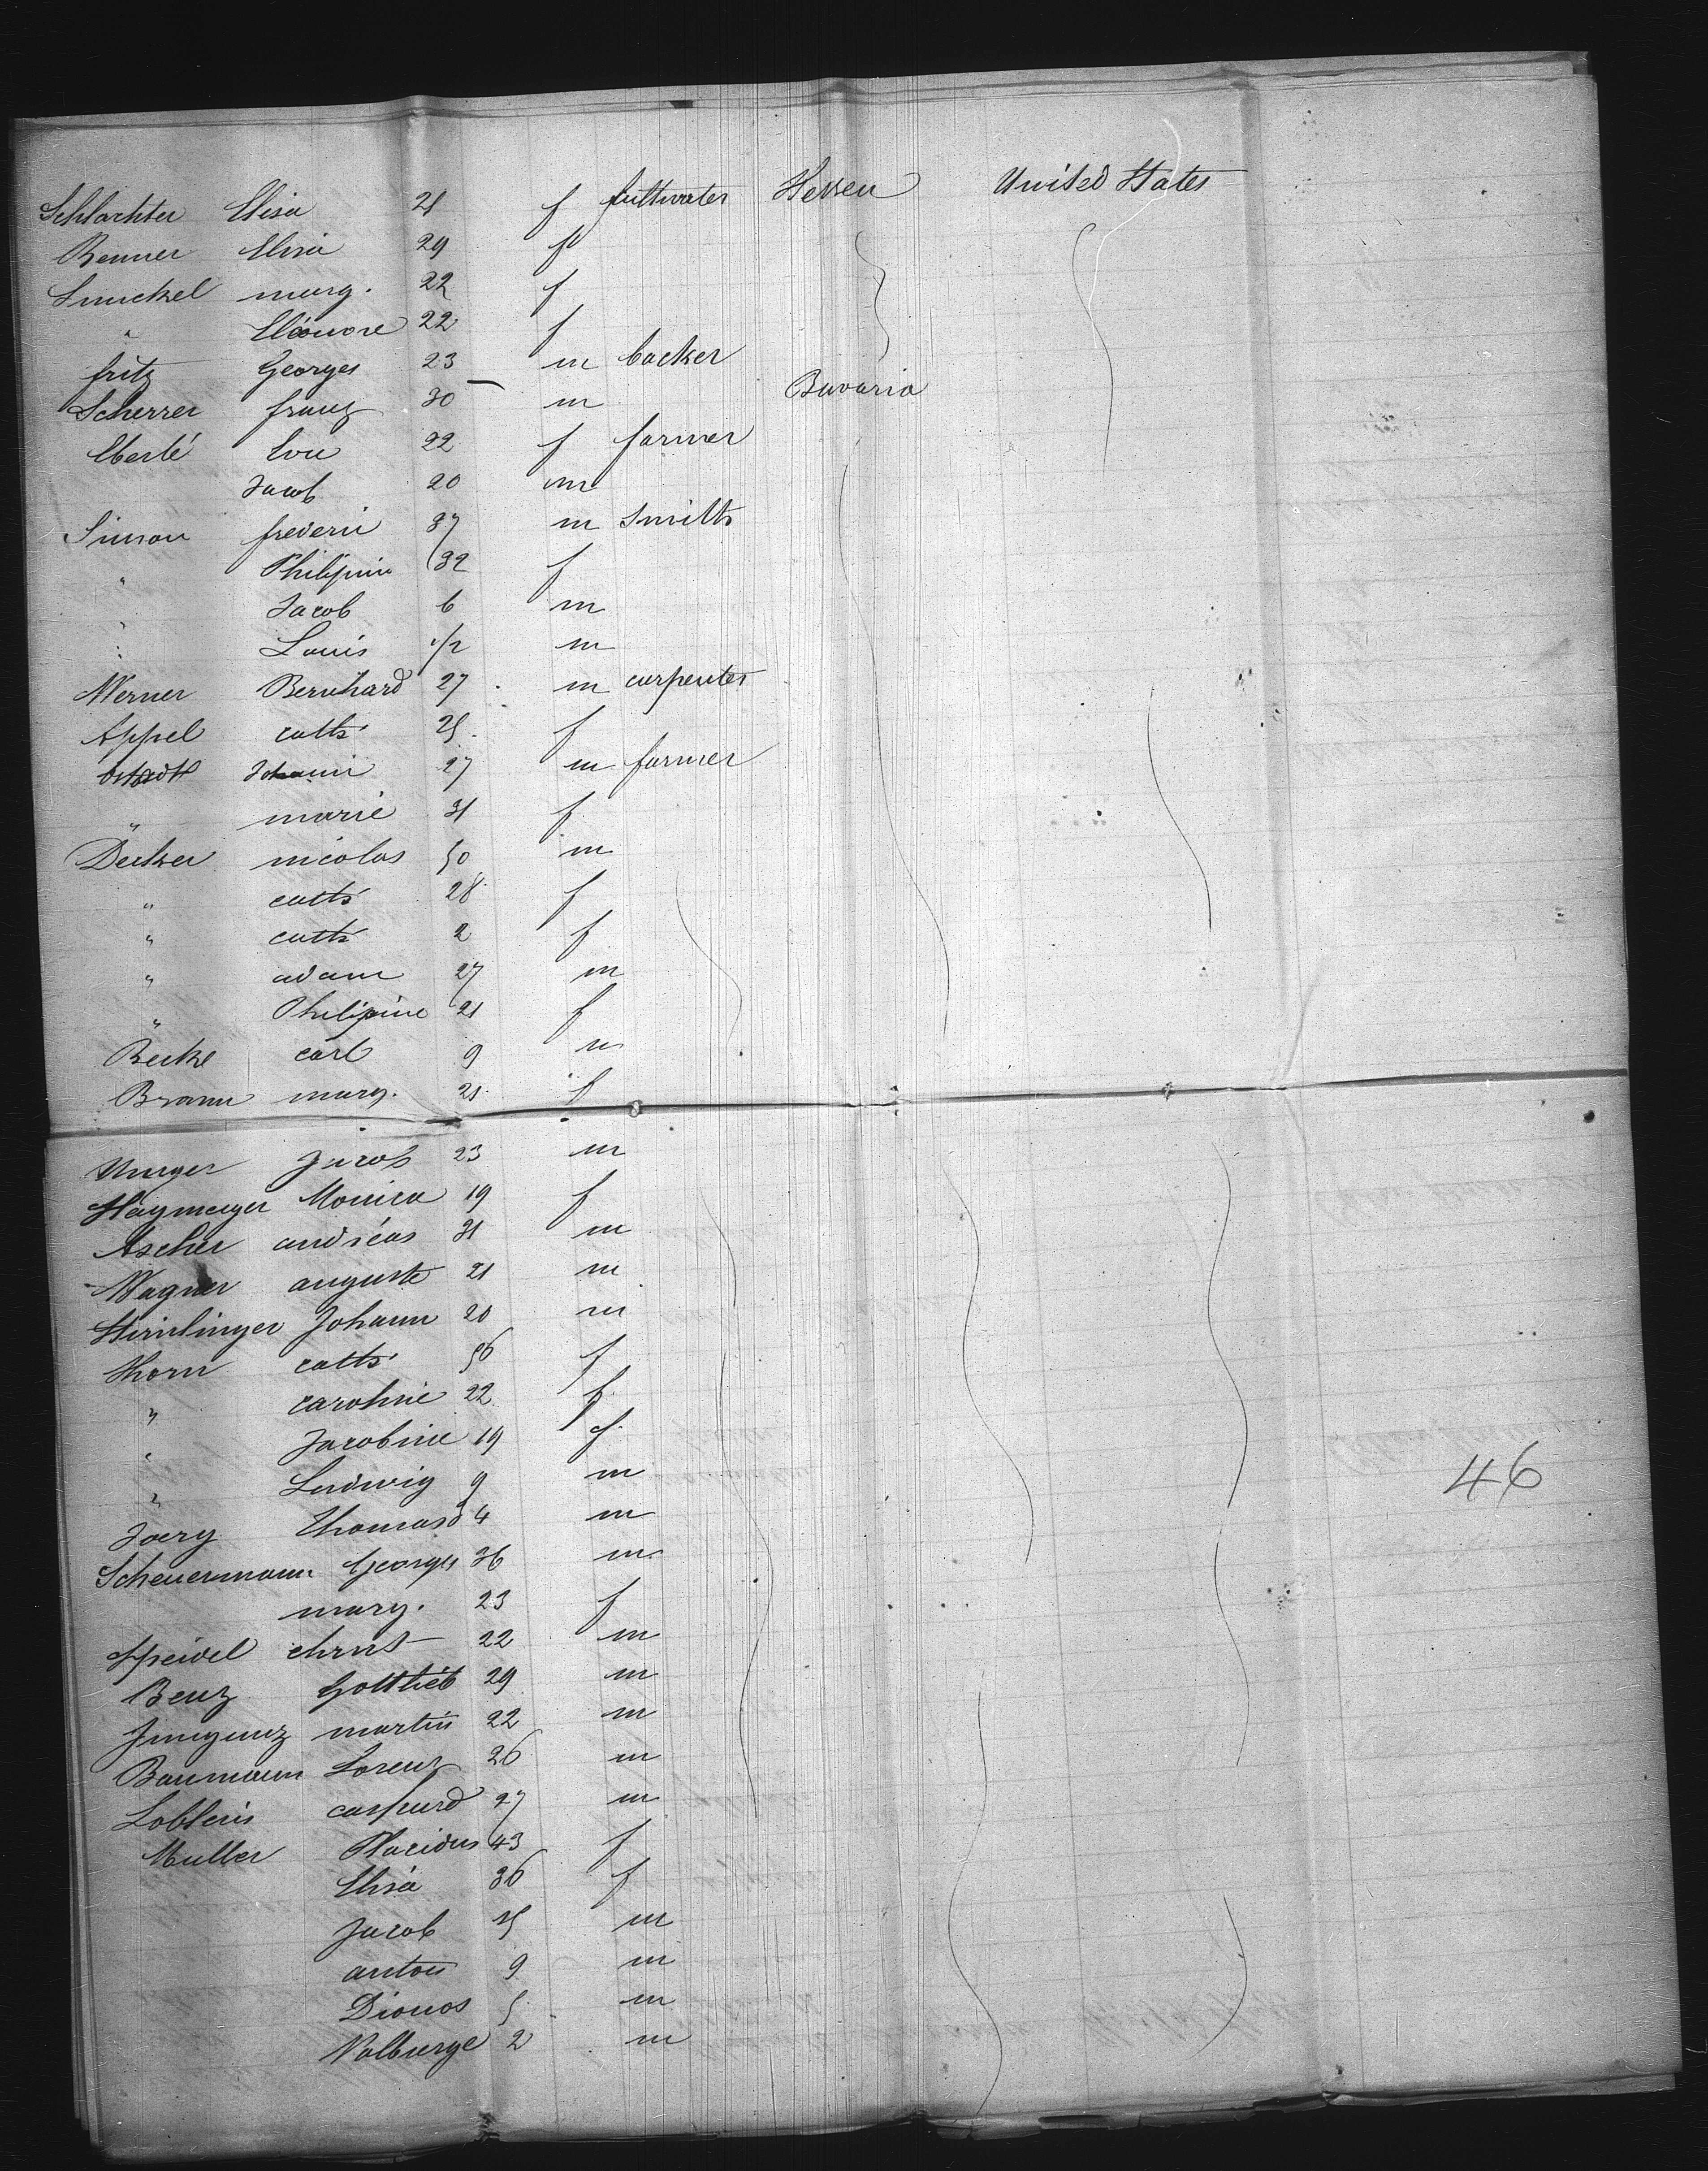 Schlachter Elisa 21 f Hessen United States
Renner Elisa 29 f
Smuckel marg. 22 f
" Eléonore 22 f
fritz Georges 23 m backer
Scherrer franz 30 m Bavaria
Eberlé Eva 22 f farmer
Jacob 20 m
Simon frederic 37 m Smith
" Philipine 32 f
" Jacob 6 m
" Louis 1/2 m
Werner Bernhard 27 m carpenter
Appel cath 25 f
27 m farmer
" marie 31 f
Decker nicolas 50 m
" cath 28 f
" cath 2 f
" adam 27 m
" Philipine 21 f
carl 9 m
Braun marg. 21 f
Unger Jacob 23 m
Haymeyer Monica 19 f
Ascher andréas 31 m
Wagner auguste 21 m
Johann 20 m
Horn cath 56 f
" caroline 22 f
" Jacobine 19 f
" Ludwig 9 m
Joerg Thomas m
Scheuermann Georges 36 m
marg. 23 f
Speidel christ 22 m
Benz Gottlieb 29 m
martin 22 m
Baumann Lorenz 26 m
caspard 27 m
46
Muller Placidus 43 f
Elisa 36 f
Jacob m
anton 9 m
Dionos 5 m
Valburge 2 m